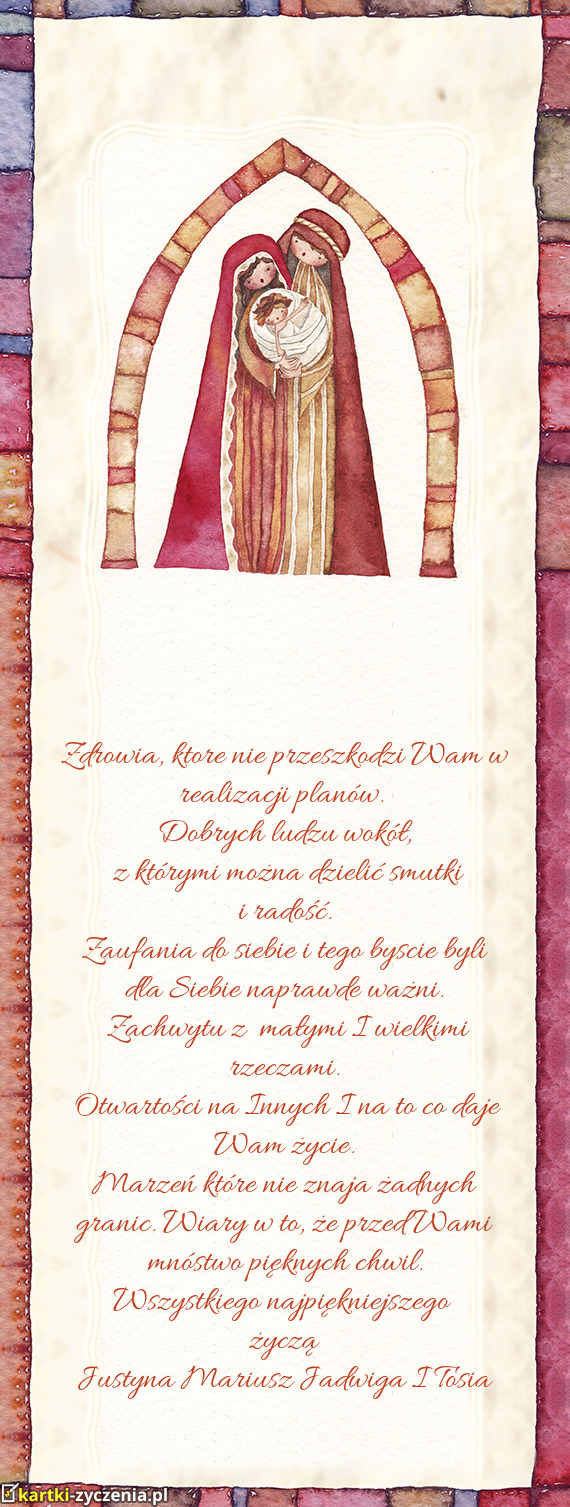 Zdrowia, ktore nie przeszkodzi Wam w
realizacji planów.
Dobrych ludzu wokół,
z którymi można dzielić smutki
i radość.
Zaufania do siebie i tego byscie byli
dla Siebie naprawde ważni.
Zachwytu z małymi I wielkimi
rzeczami.
Otwartości na Innych I na to co daje
Wam życie.
Marzeń które nie znaja żadnych
granic. Wiary w to, że przed Wami
mnóstwo pięknych chwil.
Wszystkiego najpiękniejszego
życzą
Justyna Mariusz Jadwiga I Tosia
kartki-zyczenia.pl